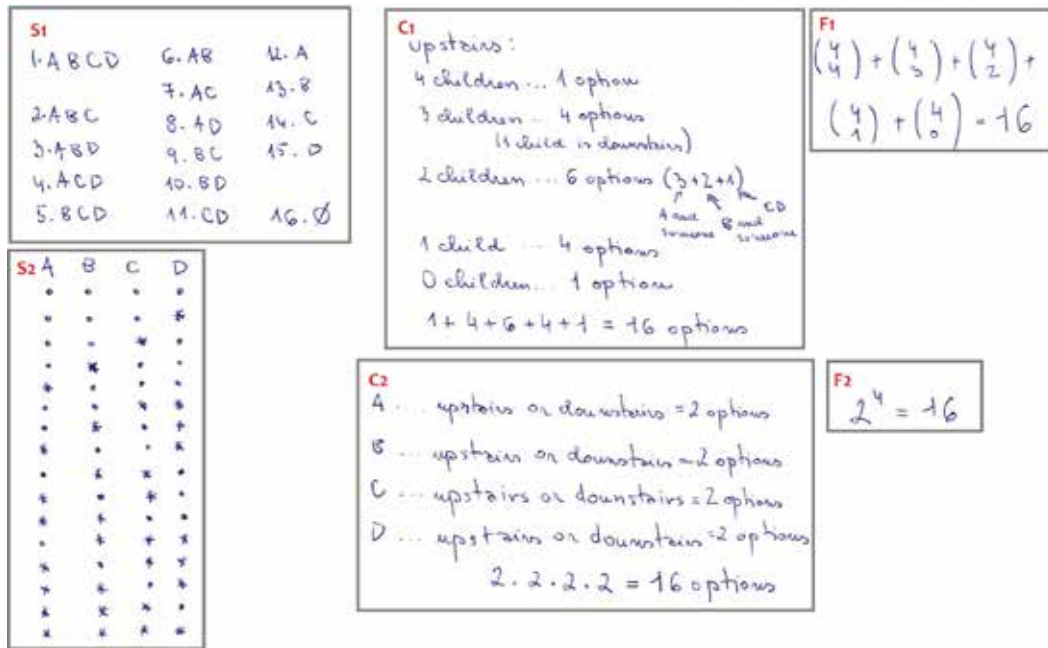 S1
1. ABCD
2. ABC
3. ABD
4. ACD
5. BCD
6. AB
7. AC
8. AD
9. BC
10. BD
11. CD
12. A
13. B
14. C
15. D
16. Ø
S2
A B C D
• • • •
• • • *
• • * •
• * • •
* • • •
• • * *
• * • *
* • • *
• * * •
* • * •
* * • •
• * * *
* • * *
* * • *
* * * •
* * * *
C1
upstairs:
4 children ... 1 option
3 children ... 4 options
(1 child is downstairs)
2 children ... 6 options (3+2+1)
A and someone
B and someone
CD
1 child ... 4 options
0 children ... 1 option
1 + 4 + 6 + 4 + 1 = 16 options
C2
A .... upstairs or downstairs = 2 options
B ... upstairs or downstairs = 2 options
C ... upstairs or downstairs = 2 options
D ... upstairs or downstairs = 2 options
2 . 2 . 2 . 2 = 16 options
F1
(4 4) + (4 3) + (4 2) +
(4 1) + (4 0) = 16
F2
2⁴ = 16